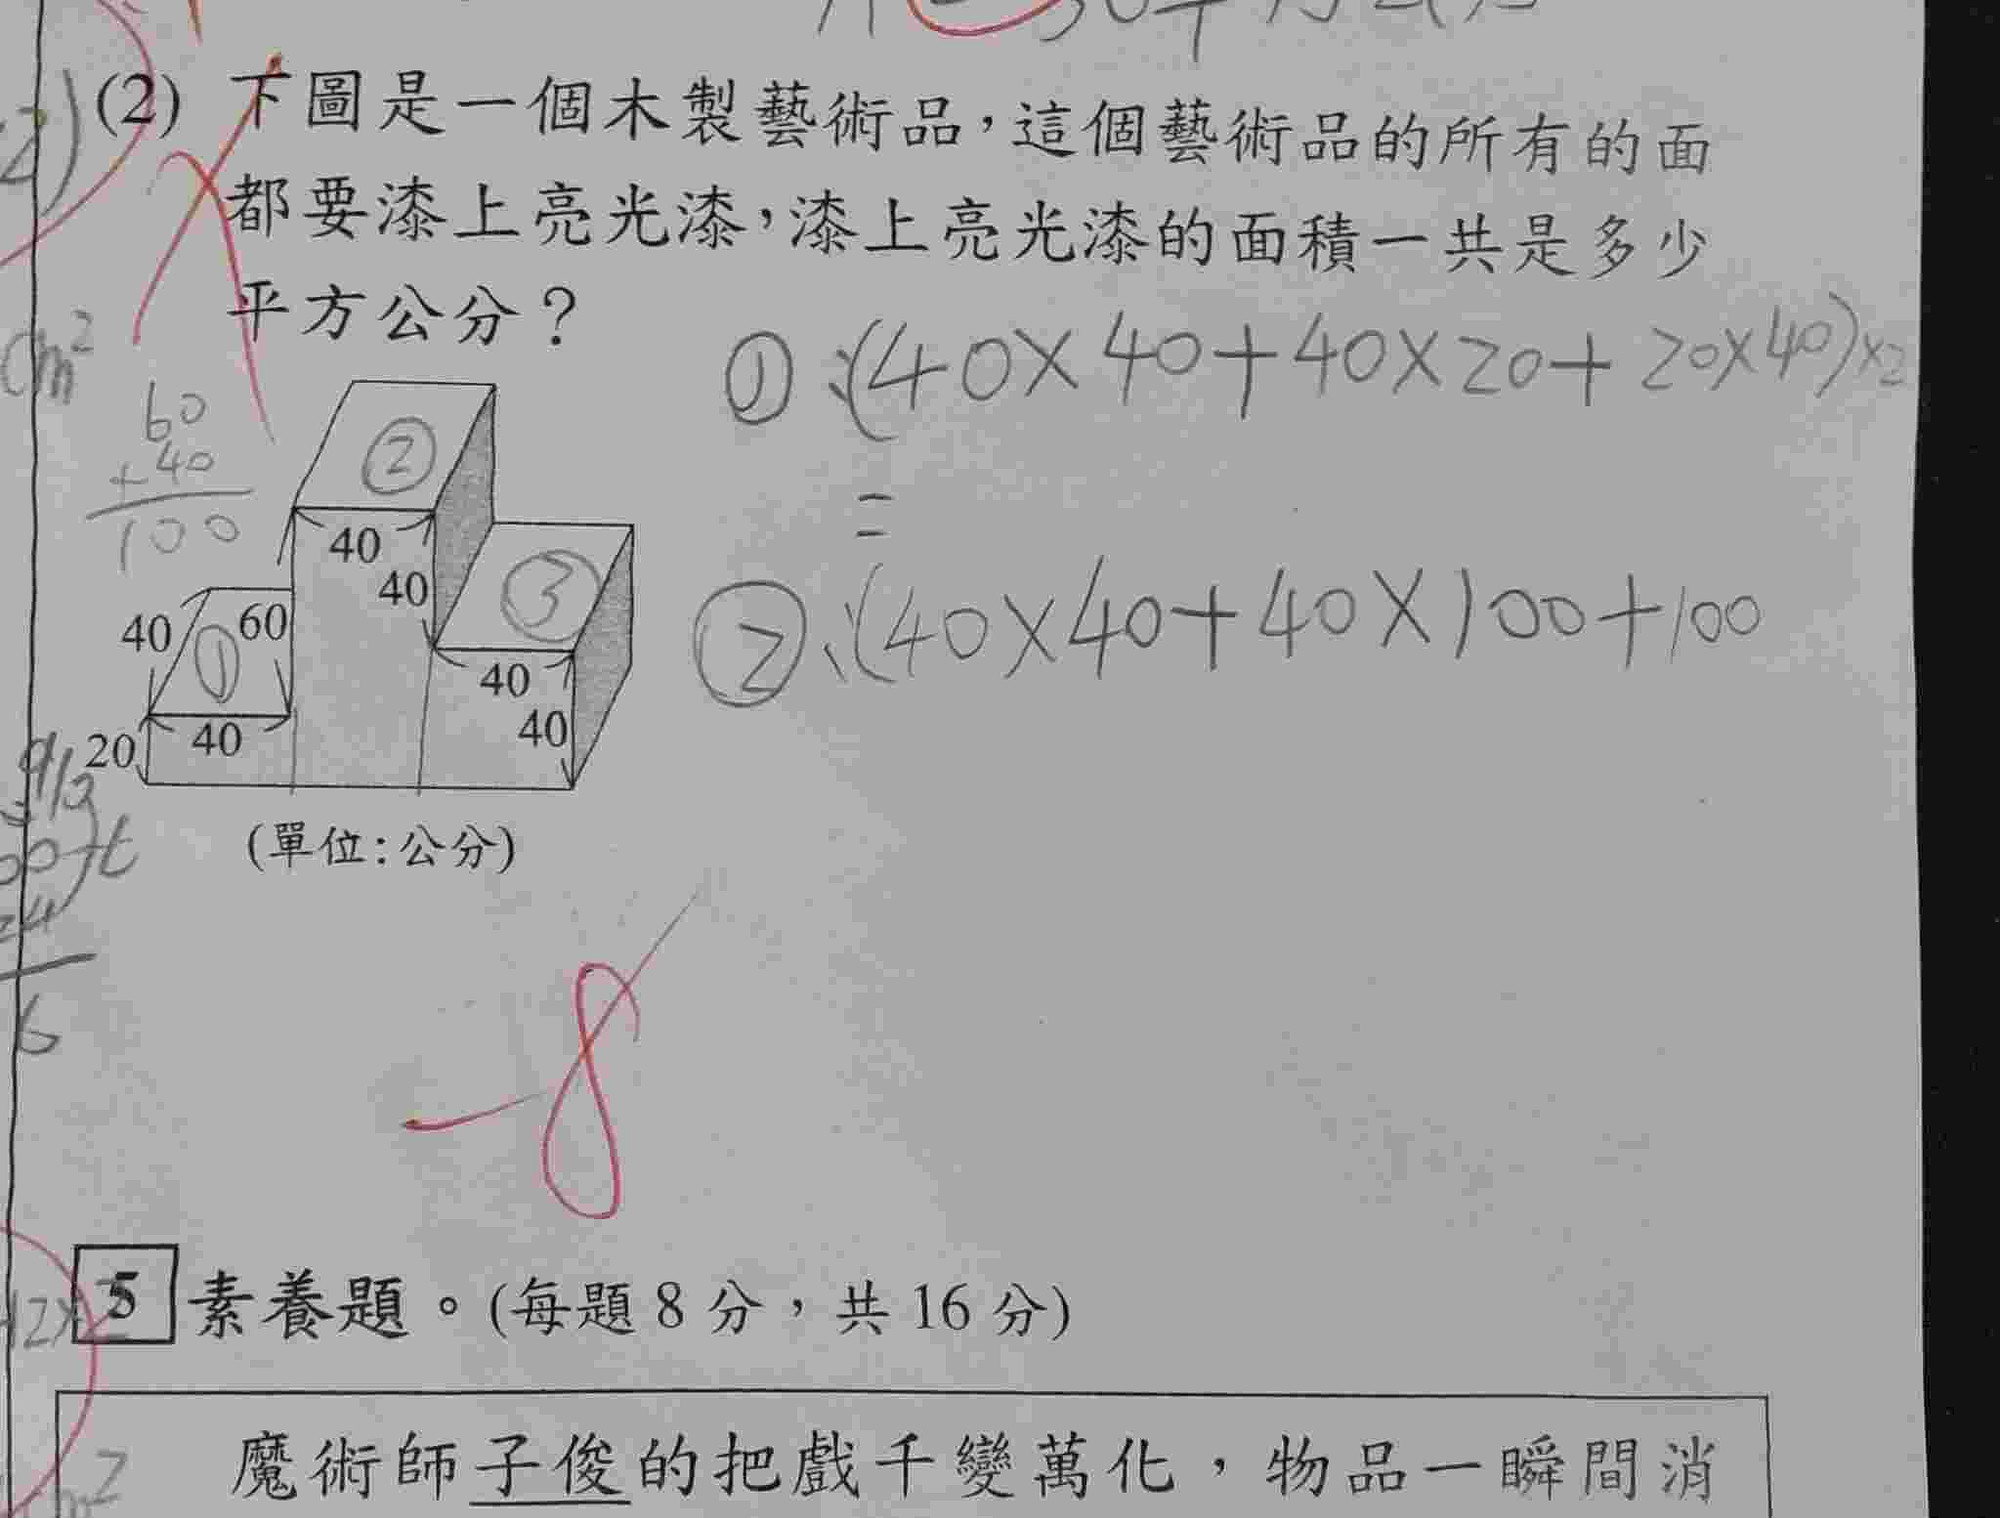 (2) 下圖是一個木製藝術品，這個藝術品的所有的面
都要漆上亮光漆，漆上亮光漆的面積一共是多少
平方公分？
cm²
①、(40×40+40×20+20×40)×2
=
②、(40×40+40×100+100
60
+40
100
②
40
40
③
40
60
①
40
40
20
40
40
(單位:公分)
-8
6
5 素養題。(每題 8 分，共 16 分)
魔術師子俊的把戲千變萬化，物品一瞬間消